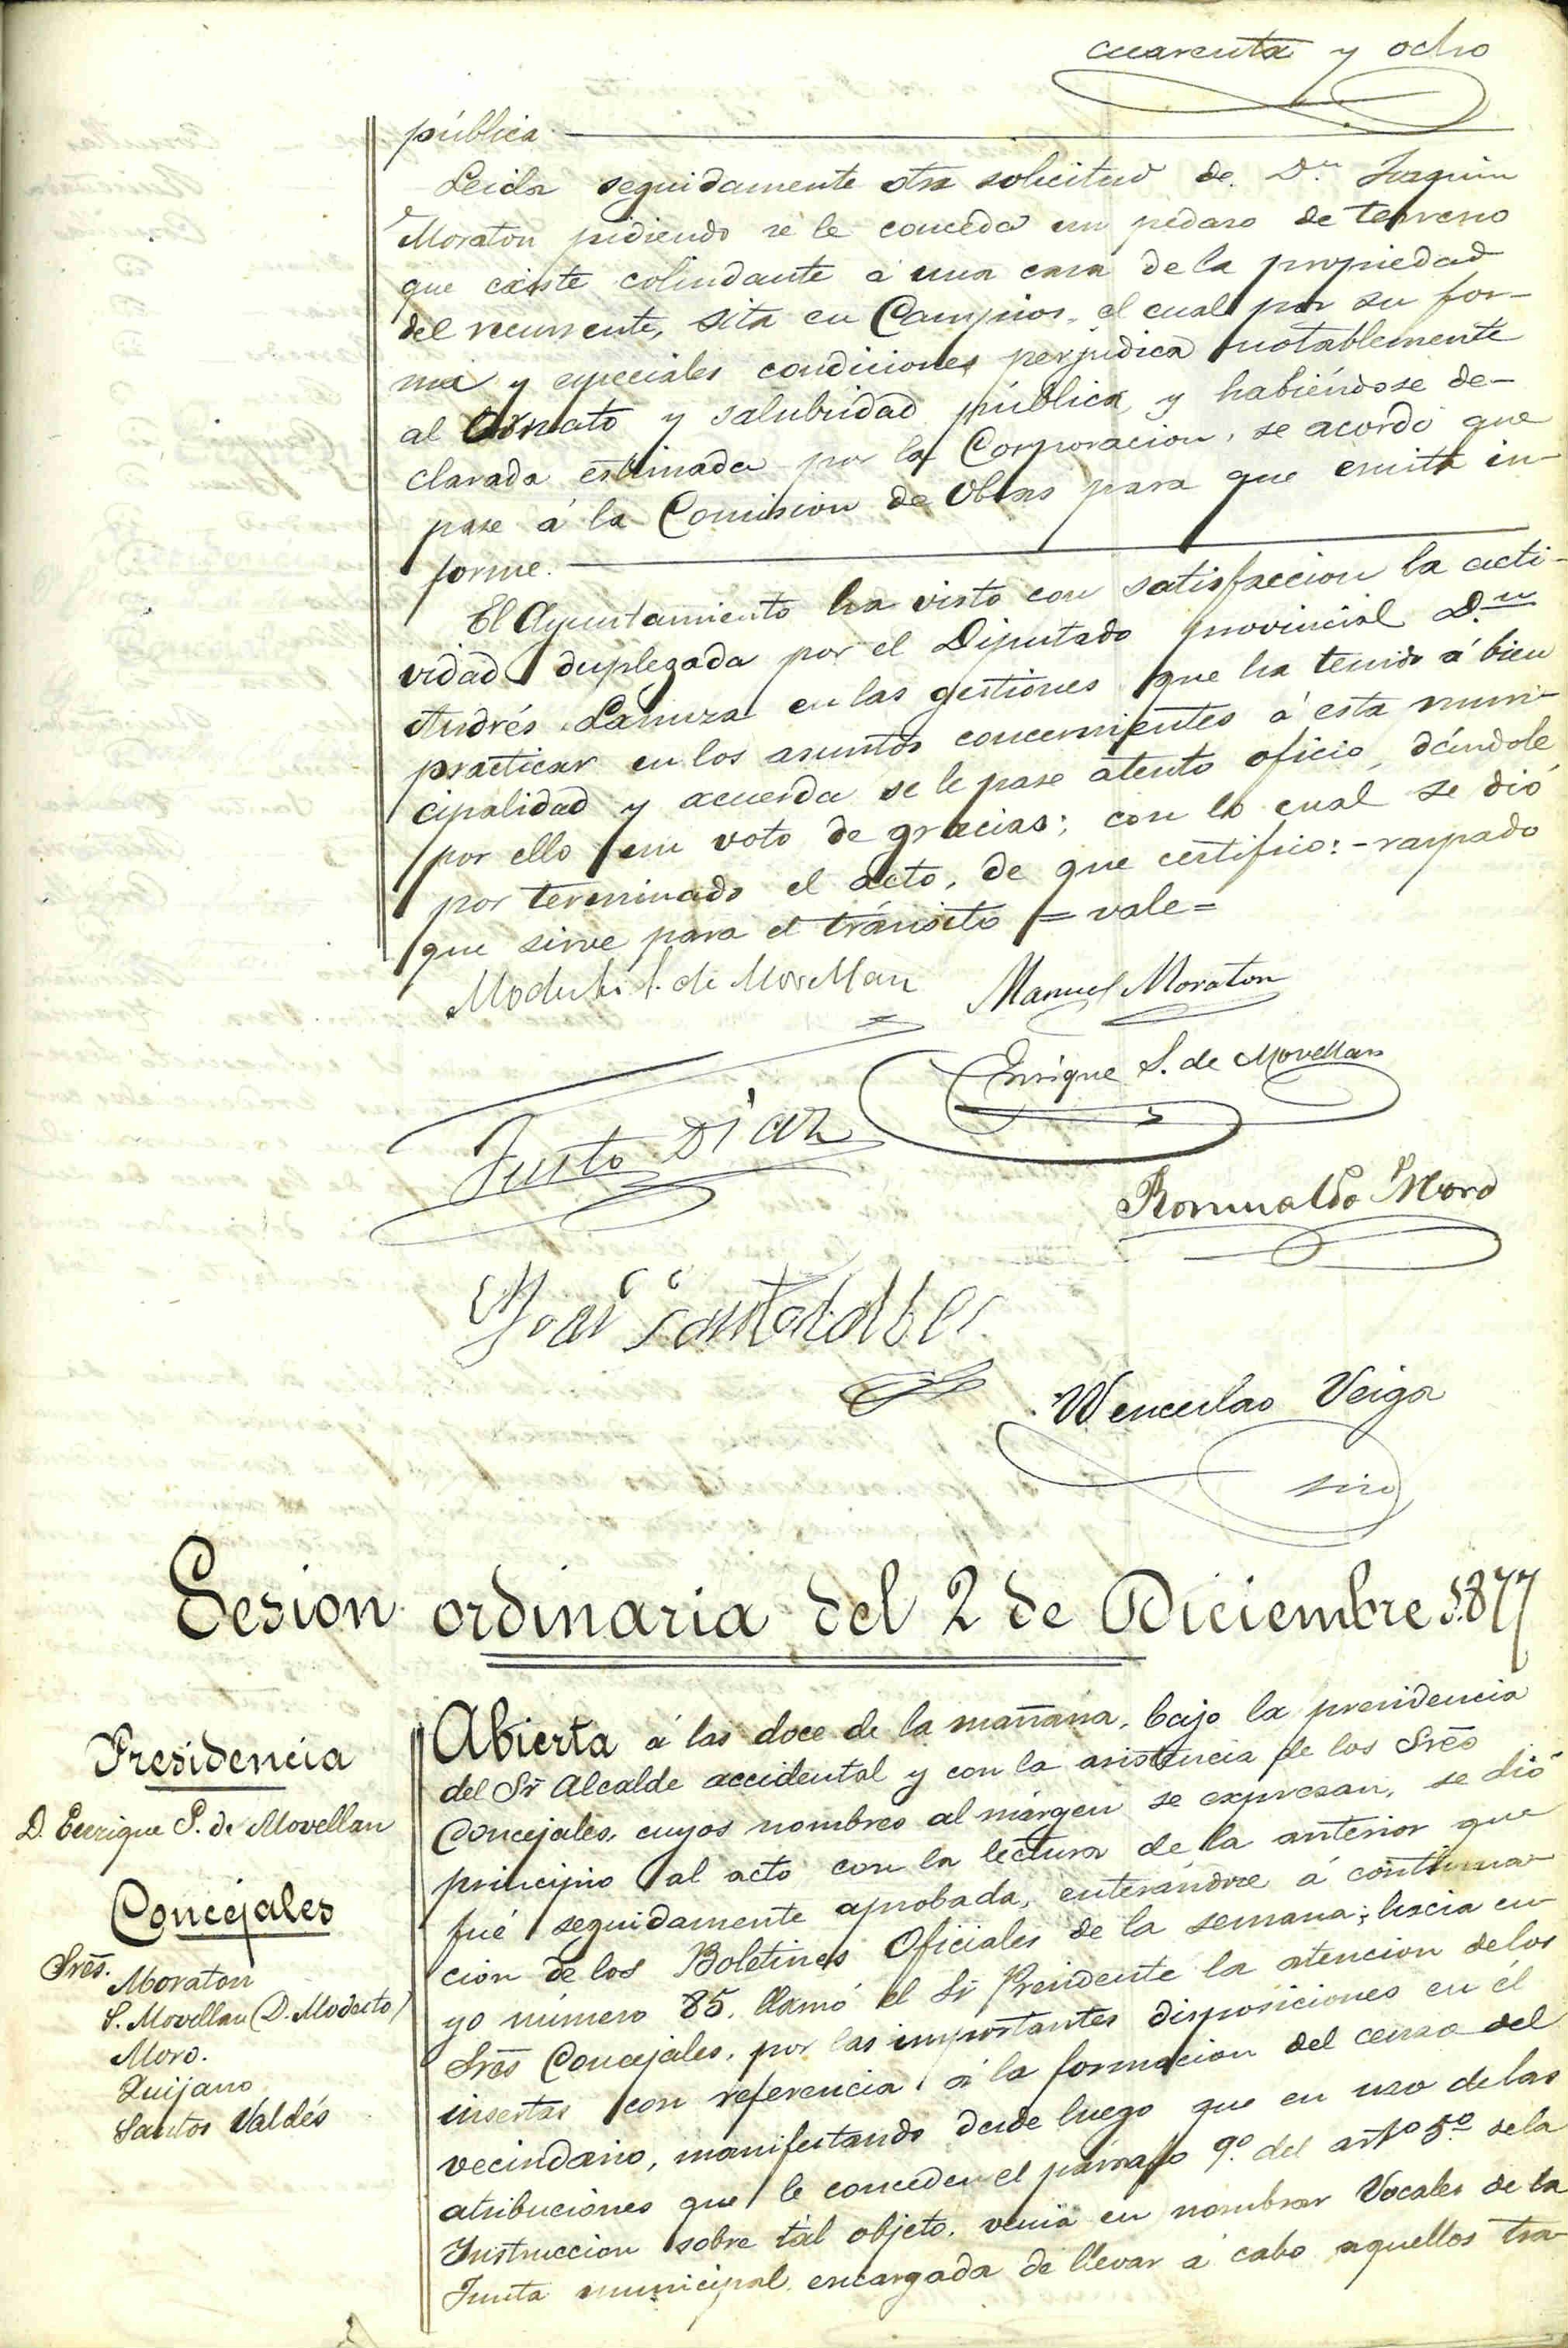 cuarenta y ocho
pública.
Leida seguidamente otra solicitud de D.n Joaquin
Moraton pidiendo se le conceda un pedaso de terreno
que existe colindante á una casa de la propiedad
del recurrente, sita en Campios, el cual por su for-
ma y especiales condiciones perjudica notablemente
al ornato y salubridad pública, y habiéndose de-
clarada estimada por la Corporacion, se acordó que
pase á la Comision de Obras para que emita in-
forme.
El Ayuntamiento ha visto con satisfaccion la acti-
vidad duplegada por el Diputado provincial D.n
Andrés Lanuza en las gestiones que ha tenido á bien
practicar en los asuntos concernientes á esta muni-
cipalidad y acuerda se le pase atento oficio, dándole
por ello un voto de gracias; con lo cual se dió
por terminado el acto, de que certifico: - raspado
que sirve para el tránsito = vale =
Modesto S. de Movellan
Manuel Moraton
Enrique S. de Movellan
Justo Diaz
Romualdo Moro
José Santos Valdes
Wenceslao Veiga
srio
Sesion ordinaria del 2 de Diciembre 1877
Presidencia
D. Enrique S. de Movellan
Concejales
Sres.
Moraton
S. Movellan (D. Modesto)
Moro.
Quijano
Santos Valdés
Abierta á las doce de la mañana, bajo la presidencia
del Sr Alcalde accidental y con la asistencia de los Sres
Concejales, cuyos nombres al márgen se expresan, se dió
principio al acto con la lectura de la anterior que
fué seguidamente aprobada, enterándose á continua-
cion de los Boletines Oficiales de la semana; hacia cu-
yo número 85. llamó el Sr Presidente la atencion de los
Sres Concejales, por las importantes disposiciones en él
insertas con referencia á la formacion del censo del
vecindario, manifestando desde luego que en uso de las
atribuciones que le conceden el párrafo 9.º del artº 5.º de la
Instruccion sobre tal objeto, venia en nombrar Vocales de la
Junta municipal encargada de llevar á cabo aquellos tra-